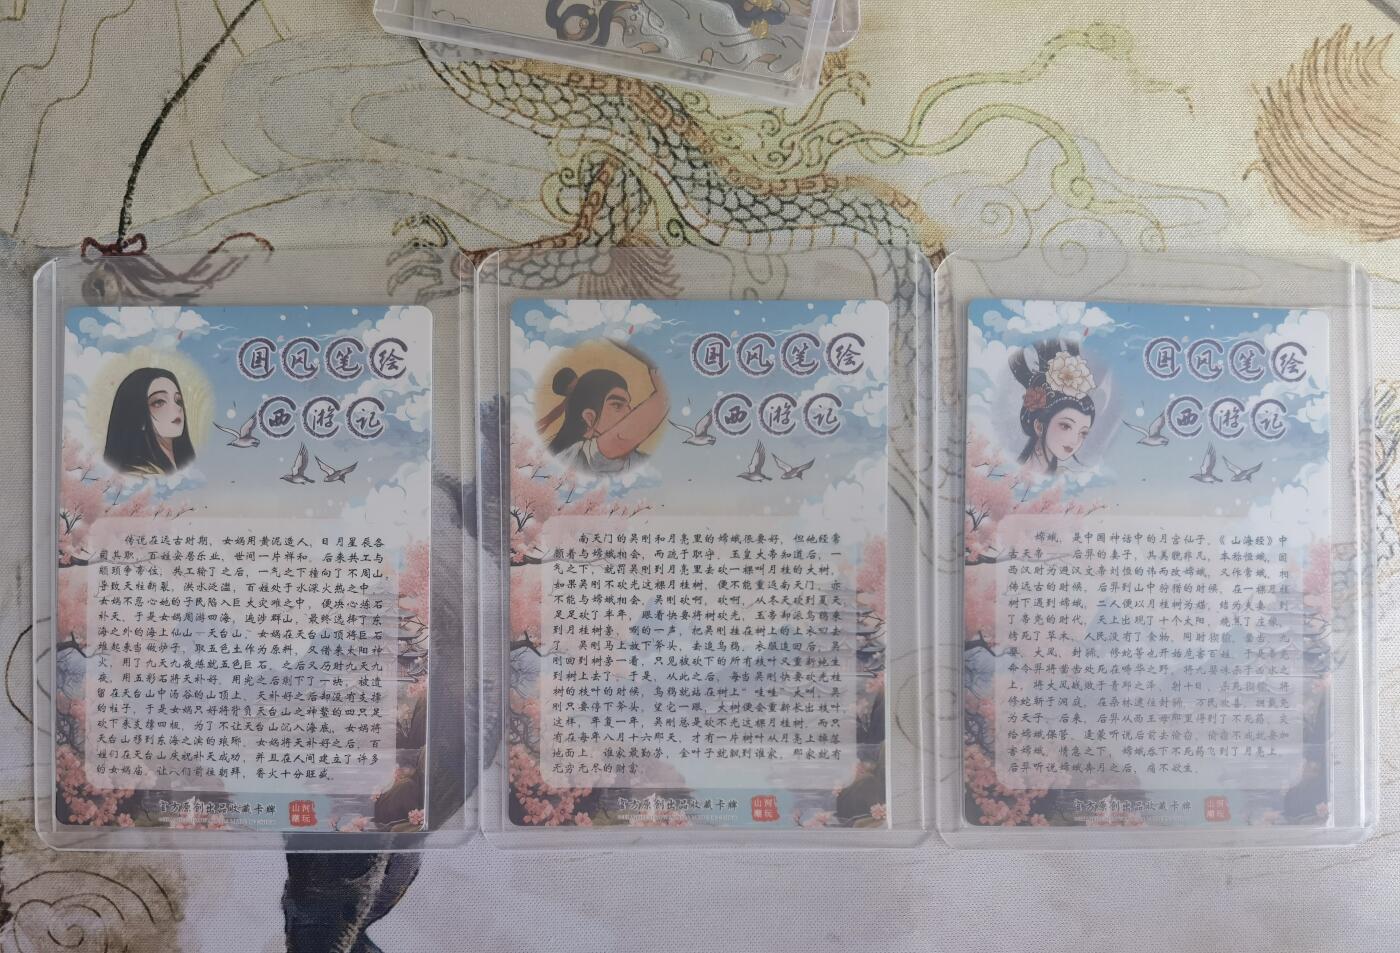 国风笔绘
西游记
传说在远古时期，女娲用黄泥造人，日月星辰各
司其职，百姓安居乐业，世间一片祥和。后来共工与
颛顼争帝位，共工输了之后，一气之下撞向了不周山，
导致天柱断裂，洪水泛滥，百姓处于水深火热之中。
女娲不忍心她的子民陷入巨大灾难之中，便决心炼石
补天。于是女娲周游四海，遍涉群山，最终选择了东
海之外的海上仙山—天台山。女娲在天台山顶将巨石
堆起来当做炉子，取五色土作为原料，又借来太阳神
火，用了九天九夜炼就五色巨石，之后又历时九天九
夜，用五彩石将天补好。用完之后剩下了一块，被遗
留在天台山中汤谷的山顶上。天补好之后却没有支撑
的柱子，于是女娲只好将背负天台山之神鳌的四只足
砍下来支撑四极。为了不让天台山沉入海底，女娲将
天台山移到东海之滨的琅琊。女娲将天补好之后，百
姓们在天台山庆祝补天成功，并且在人间建立了许多
的女娲庙，让人们前往朝拜，香火十分旺盛。
官方原创出品收藏卡牌
山河
潮玩
国风笔绘
西游记
南天门的吴刚和月亮里的嫦娥很要好，但他经常
顾着与嫦娥相会，而疏于职守。玉皇大帝知道后，一
气之下，就罚吴刚到月亮里去砍一棵叫月桂的大树，
如果吴刚不砍光这棵月桂树，便不能重返南天门，亦
不能与嫦娥相会。吴刚砍啊，砍啊，从冬天砍到夏天
足足砍了半年，眼看快要将树砍光，玉帝却派乌鸦来
到月桂树旁，唰的一声，把吴刚挂在树上的上衣叼去
了。吴刚马上放下斧头，去追乌鸦，衣服追回后，吴
刚回到树旁一看，只见被砍下的所有枝叶又重新地生
到树上去了。于是，从此之后，每当吴刚快要砍光桂
树的枝叶的时候，乌鸦就站在树上"哇哇"大叫，吴
刚只要停下斧头，望它一眼，大树便会重新长出枝叶
这样，年复一年，吴刚总是砍不光这棵月桂树。而只
有在每年八月十六那天，才有一片树叶从月亮上掉落
地面上。谁家最勤劳，金叶子就飘到谁家，那家就有
无穷无尽的财富。
官方原创出品收藏卡牌
山河
潮玩
国风笔绘
西游记
嫦娥，是中国神话中的月宫仙子。《山海经》中
古天帝 后羿的妻子，其美貌非凡，本称恒娥，因
西汉时为避汉文帝刘恒的讳而改嫦娥，又作常娥，相
传远古的时候，后羿到山中狩猎的时候，在一棵月桂
树下遇到嫦娥，二人便以月桂树为媒，结为夫妻。到
了帝尧的时代，天上出现了十个太阳，烧焦了庄稼，
烤死了草木，人民没有了食物。同时猰貐、凿齿、九
婴、大风、封豨、修蛇等也开始危害百姓。于是帝尧
命令羿将凿齿处死在畴华之野，将九婴诛杀于凶水之
上，将大风战败于青邱之泽，射十日，杀死猰貐，将
修蛇斩于洞庭，在桑林逮住封豨，万民欢喜，拥戴尧
为天子。后来，后羿从西王母那里得到了不死药，交
给嫦娥保管。逢蒙听说后前去偷窃，偷窃不成就要加
害嫦娥。情急之下，嫦娥吞下不死药飞到了月亮上，
后羿听说嫦娥奔月之后，痛不欲生。
官方原创出品收藏卡牌
山河
潮玩